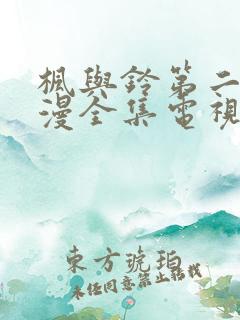 楓與鈴第二
漫全集電視
東方琥珀
未經同意禁止轉載